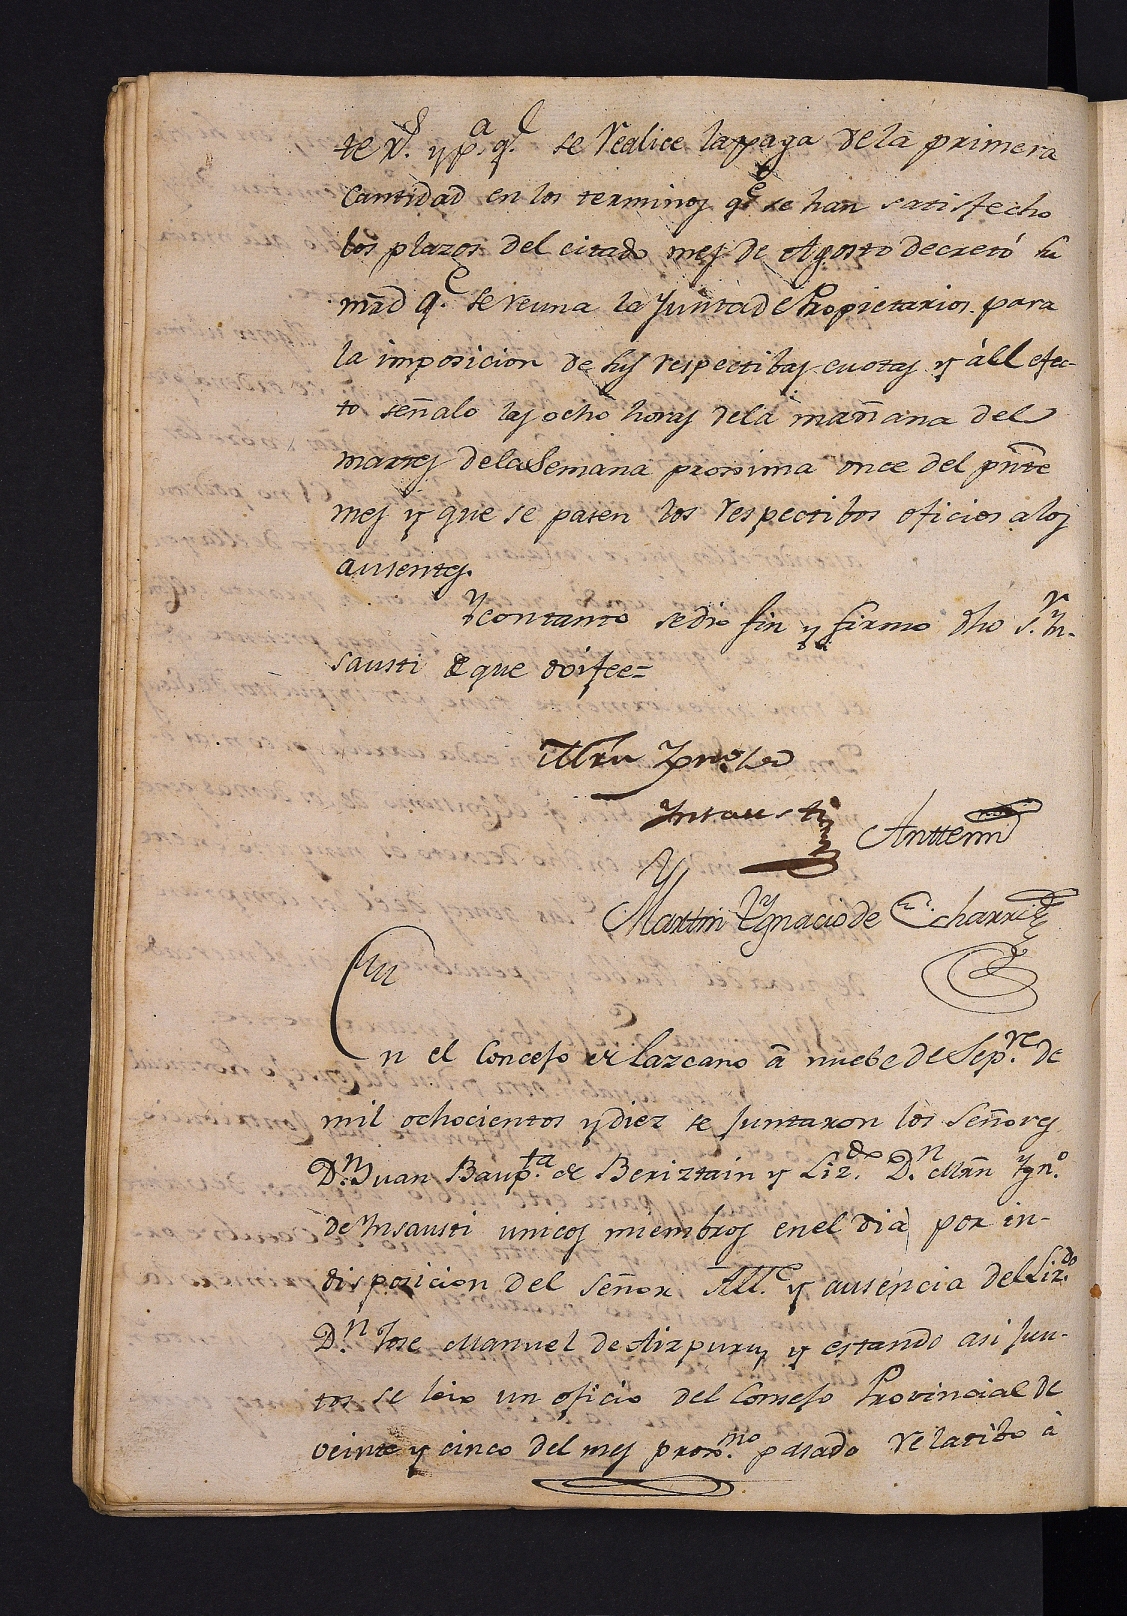 te r.s y p.a q.e se realice la paga de la primera
Cantidad en los terminos q.e se han satisfecho
los plazos del citado mes de Agosto decretó su
mrd q.e se reuna la Junta de Propietarios para
la imposicion de sus respectibas cuotas y àll efec-
to señalo las ocho horas de la mañana del
martes de la Semana prossima once del pñte
mes y que se pasen los respectibos oficios a los
ausentes.
Y con tanto se dio fin y firmo dho S.r Yn-
sausti de que doi fee=
Mrñ Ygn.o
Ynsausti
Anttemi
Martin Ygnacio de Echarri
En el Concejo de Lazcano â nuebe de Sep.re de
mil ochocientos y diez se juntaron los Señores
D.n Juan Baup.ta de Beriztain y Liz.do D.n Mrñ Ygn.o
de Ynsausti unicos miembros en el dia por in-
disposicion del Señor All.e y ausencia del Liz.do
D.n Jose Manuel de Aizpuru, y estando asi jun-
tos se leio un oficio del Consejo Provincial de
veinte y cinco del mes prox.mo pasado relatibo à